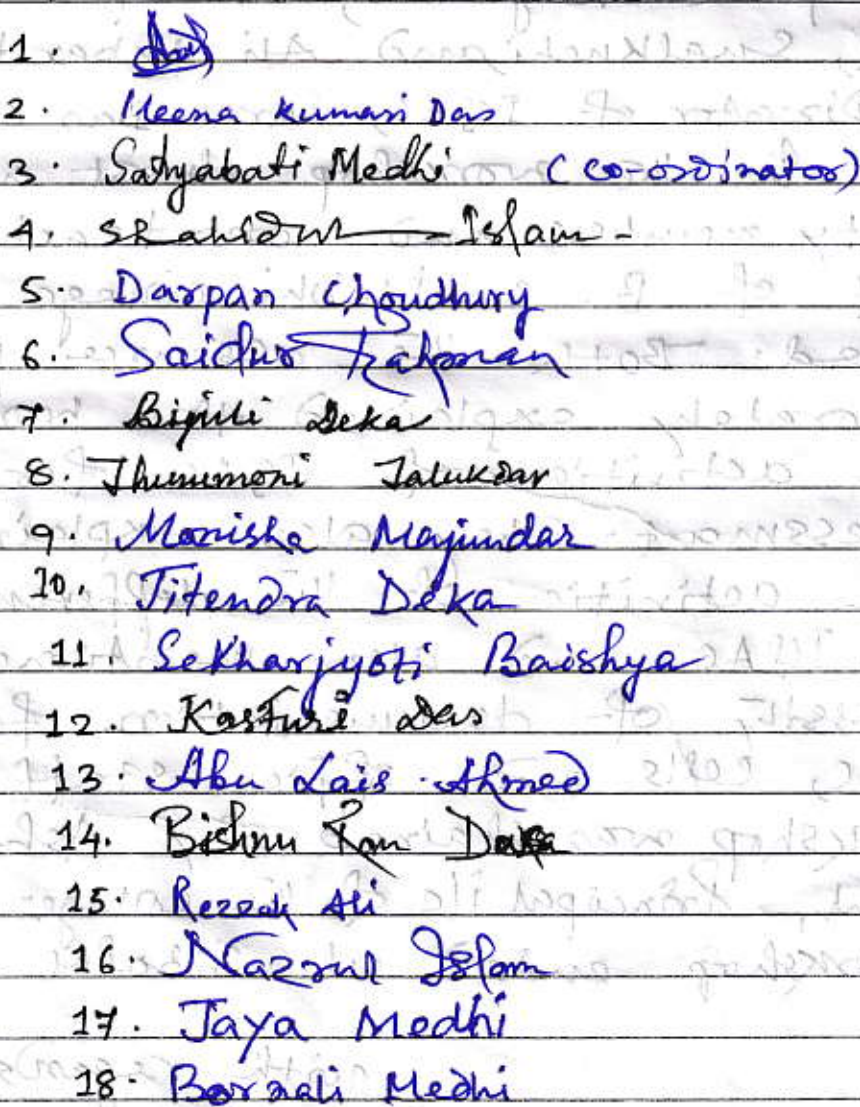 1.
2. Heena Kumari Das
3. Satyabati Medhi (co-ordinator)
4. Islam -
5. Darpan Choudhury
6. Saidur Rahman
7. Bijuli Deka
8. Jhunumoni Talukdar
9. Monisha Majumdar
10. Jitendra Deka
11. Sekharjyoti Baishya
12. Kasturi Das
13. Abu Lais Ahmed
14. Bishnu Ram
15. Rezzak Ali
16. Nazrul Islam
17. Jaya Medhi
18. Bornali Medhi